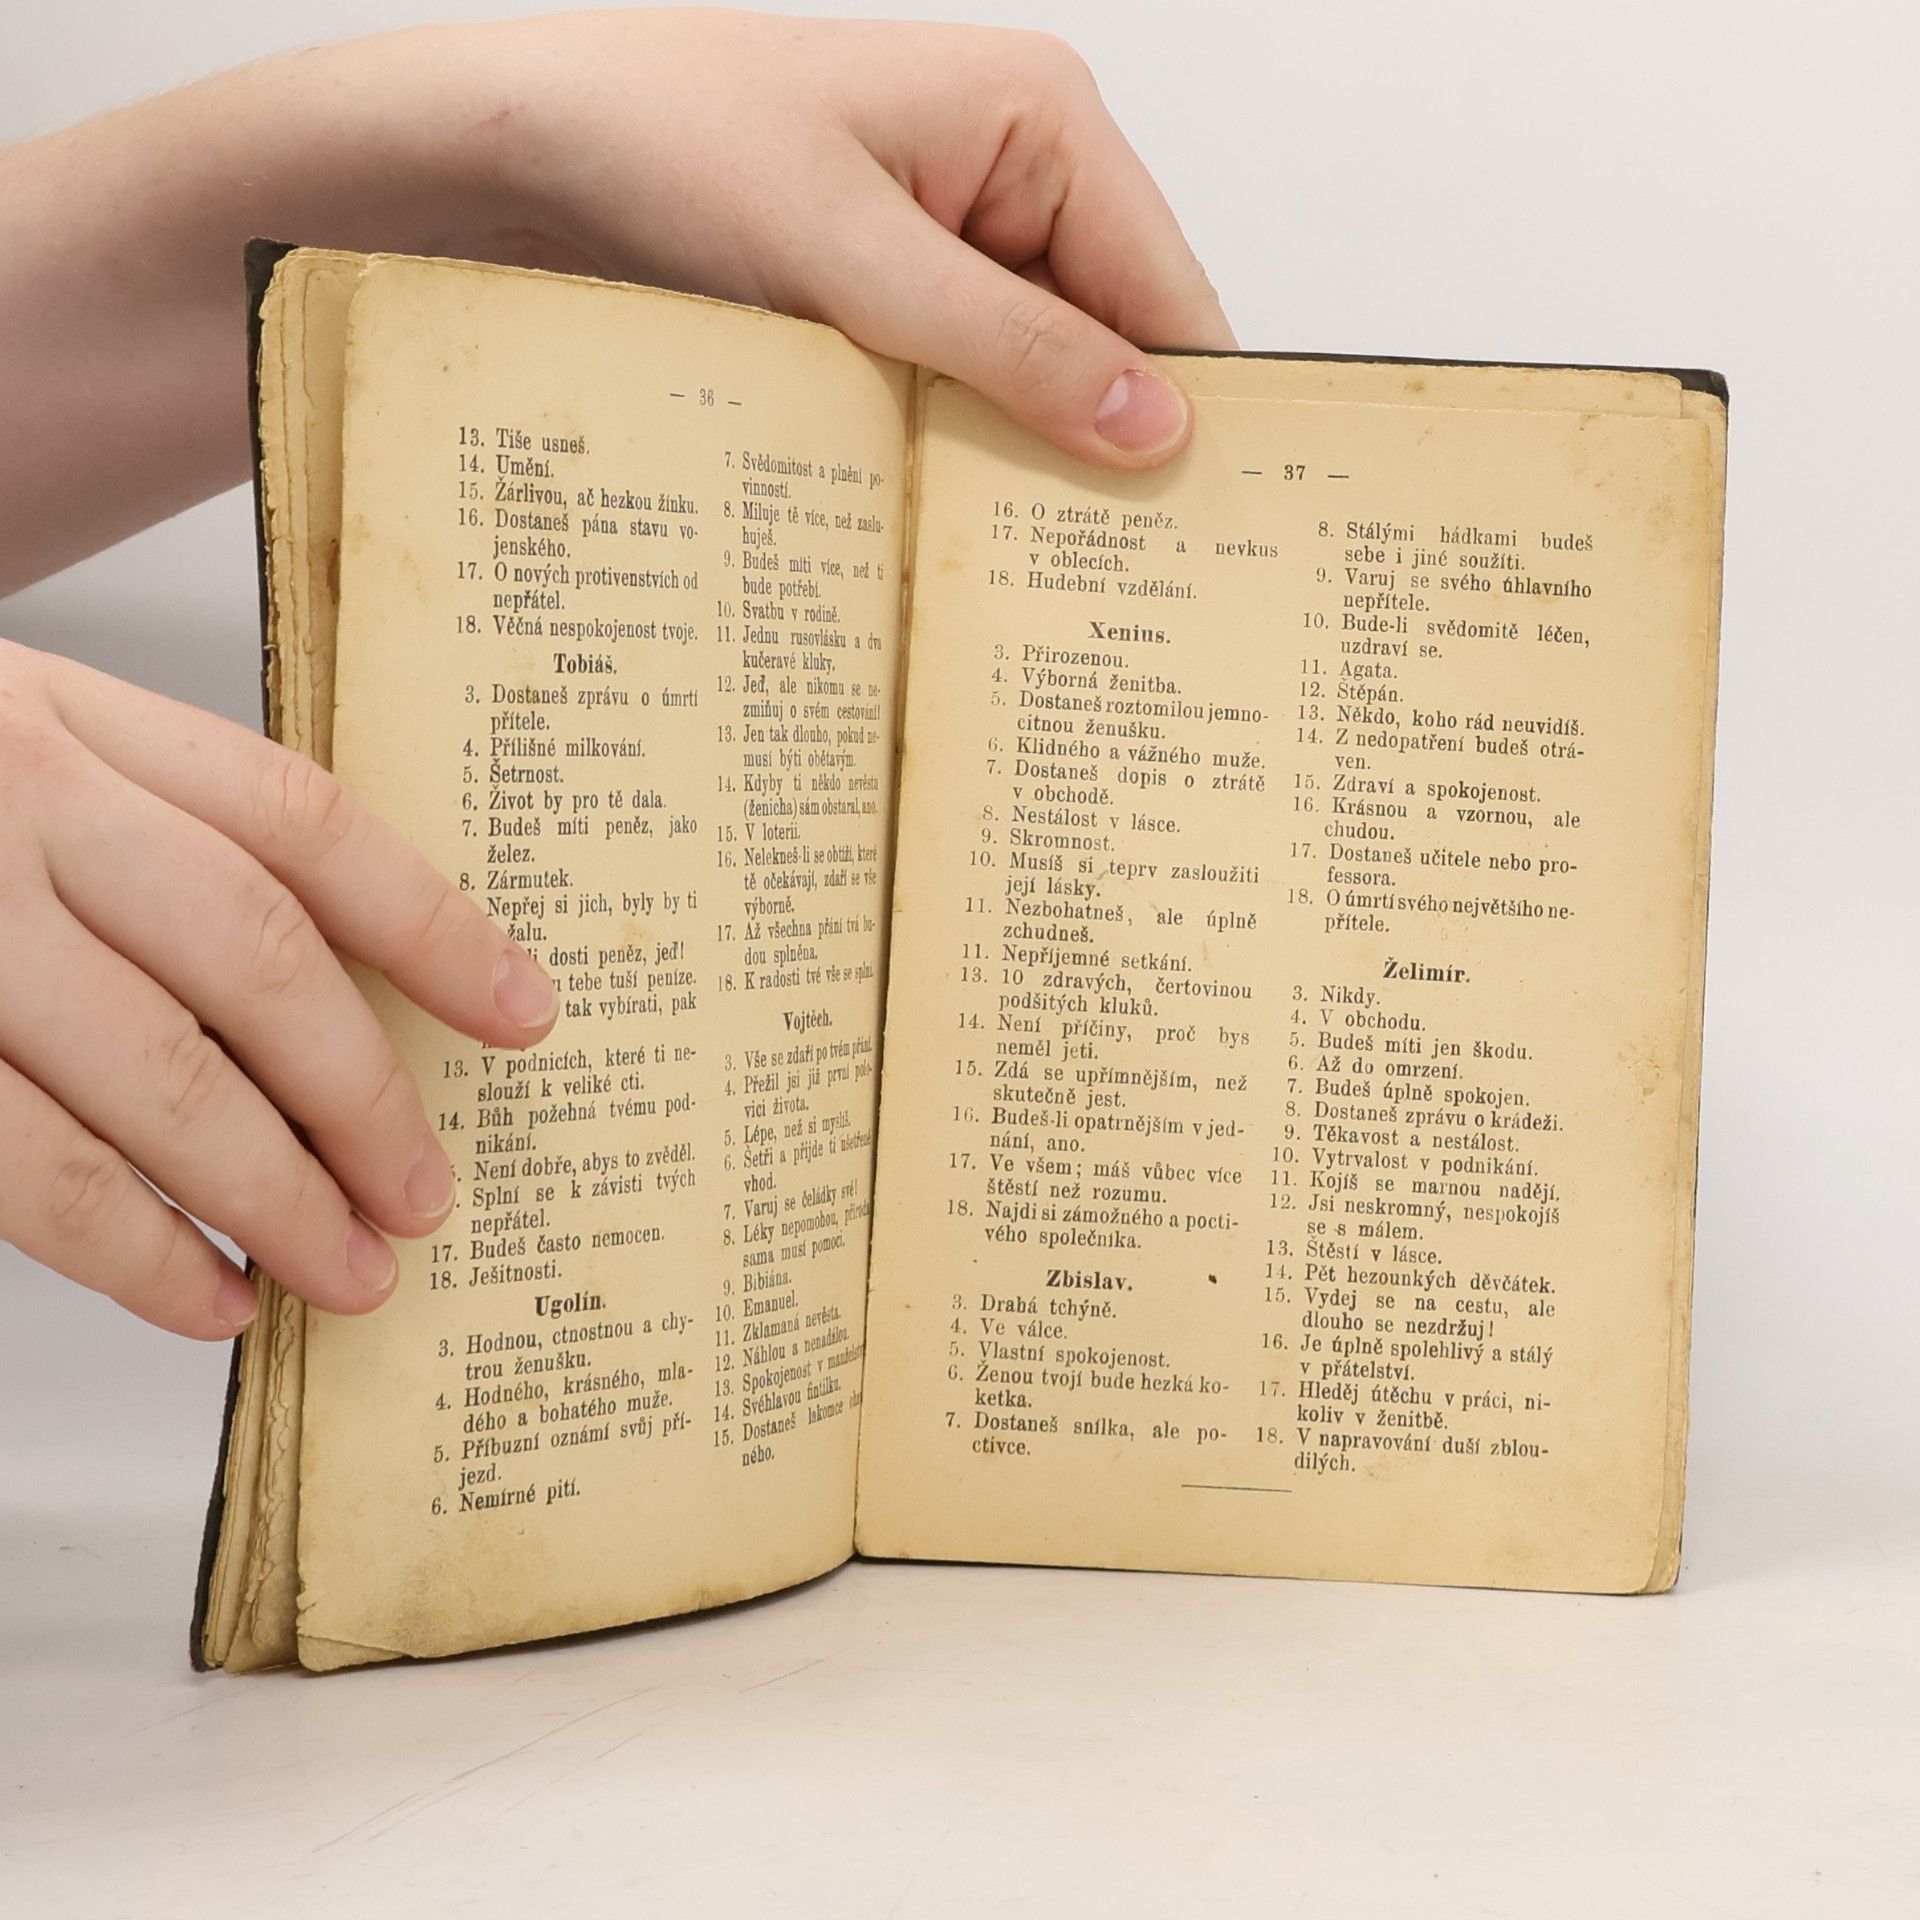 — 36 —
13. Tiše usneš.
14. Umění.
15. Žárlivou, ač hezkou žínku.
16. Dostaneš pána stavu vo-
jenského.
17. O nových protivenstvích od
nepřátel.
18. Věčná nespokojenost tvoje.
Tobiáš.
3. Dostaneš zprávu o úmrtí
přítele.
4. Přílišné milkování.
5. Šetrnost.
6. Život by pro tě dala.
7. Budeš míti peněz, jako
želez.
8. Zármutek.
Nepřej si jich, byly by ti
žalu.
dosti peněz, jeď!
tebe tuší peníze.
tak vybírati, pak
13. V podnicích, které ti ne-
slouží k veliké cti.
14. Bůh požehná tvému pod-
nikání.
Není dobře, abys to zvěděl.
Splní se k závisti tvých
nepřátel.
17. Budeš často nemocen.
18. Ješitnosti.
Ugolín.
3. Hodnou, ctnostnou a chy-
trou ženušku.
4. Hodného, krásného, mla-
dého a bohatého muže.
5. Příbuzní oznámí svůj pří-
jezd.
6. Nemírné pití.
7. Svědomitost a plnění po-
vinností.
8. Miluje tě více, než zaslu-
huješ.
9. Budeš míti více, než ti
bude potřebí.
10. Svatbu v rodině.
11. Jednu rusovlásku a dva
kučeravé kluky.
12. Jeď, ale nikomu se ne-
zmiňuj o svém cestování!
13. Jen tak dlouho, pokud ne-
musí býti obětavým.
14. Kdyby ti někdo nevěstu
(ženicha) sám obstaral, ano.
15. V loterii.
16. Nelekneš-li se obtíží, které
tě očekávají, zdaří se vše
výborně.
17. Až všechna přání tvá bu-
dou splněna.
18. K radosti tvé vše se splní.
Vojtěch.
3. Vše se zdaří po tvém přání.
4. Přežil jsi již první polo-
vici života.
5. Lépe, než si myslíš.
6. Šetři a přijde ti ušetřené
vhod.
7. Varuj se čeládky své!
8. Léky nepomohou, příroda
sama musí pomoci.
9. Bibiána.
10. Emanuel.
11. Zklamaná nevěsta.
12. Náhlou a nenadálou.
13. Spokojenost v manželství
14. Svéhlavou fintilku.
15. Dostaneš lakomce
ného.
— 37 —
16. O ztrátě peněz.
17. Nepořádnost a nevkus
v oblecích.
18. Hudební vzdělání.
Xenius.
3. Přirozenou.
4. Výborná ženitba.
5. Dostaneš roztomilou jemno-
citnou ženušku.
6. Klidného a vážného muže.
7. Dostaneš dopis o ztrátě
v obchodě.
8. Nestálost v lásce.
9. Skromnost.
10. Musíš si teprv zasloužiti
její lásky.
11. Nezbohatneš, ale úplně
zchudneš.
11. Nepříjemné setkání.
13. 10 zdravých, čertovinou
podšitých kluků.
14. Není příčiny, proč bys
neměl jeti.
15. Zdá se upřímnějším, než
skutečně jest.
16. Budeš-li opatrnějším v jed-
nání, ano.
17. Ve všem; máš vůbec více
štěstí než rozumu.
18. Najdi si zámožného a pocti-
vého společníka.
Zbislav.
3. Drahá tchýně.
4. Ve válce.
5. Vlastní spokojenost.
6. Ženou tvojí bude hezká ko-
ketka.
7. Dostaneš snílka, ale po-
ctivce.
8. Stálými hádkami budeš
sebe i jiné soužíti.
9. Varuj se svého úhlavního
nepřítele.
10. Bude-li svědomitě léčen,
uzdraví se.
11. Agata.
12. Štěpán.
13. Někdo, koho rád neuvidíš.
14. Z nedopatření budeš otrá-
ven.
15. Zdraví a spokojenost.
16. Krásnou a vzornou, ale
chudou.
17. Dostaneš učitele nebo pro-
fessora.
18. O úmrtí svého největšího ne-
přítele.
Želimír.
3. Nikdy.
4. V obchodu.
5. Budeš míti jen škodu.
6. Až do omrzení.
7. Budeš úplně spokojen.
8. Dostaneš zprávu o krádeži.
9. Těkavost a nestálost.
10. Vytrvalost v podnikání.
11. Kojíš se marnou nadějí.
12. Jsi neskromný, nespokojíš
se s málem.
13. Štěstí v lásce.
14. Pět hezounkých děvčátek.
15. Vydej se na cestu, ale
dlouho se nezdržuj!
16. Je úplně spolehlivý a stálý
v přátelství.
17. Hleděj útěchu v práci, ni-
koliv v ženitbě.
18. V napravování duší zblou-
dilých.